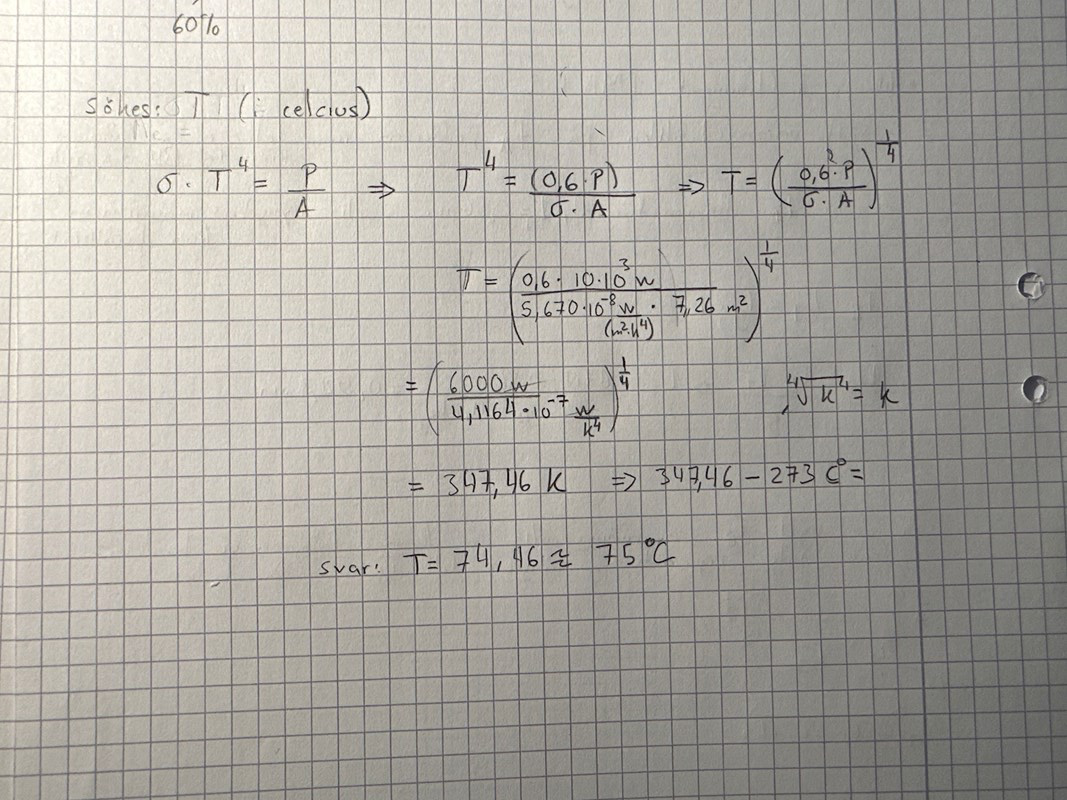 60%
Sökes: T (i celcius)
σ · T⁴ = P/A ⇒ T⁴ = (0,6·P)/(σ·A) ⇒ T = (0,6·P/(σ·A))^(1/4)
T = (0,6 · 10·10³ W/(5,670·10⁻⁸ W/(m²·K⁴) · 7,26 m²))^(1/4)
= (6000 W/(4,1164·10⁻⁷ W/K⁴))^(1/4) ⁴√K⁴ = K
= 347,46 K ⇒ 347,46 − 273 C° =
Svar: T = 74,46 ≈ 75 °C